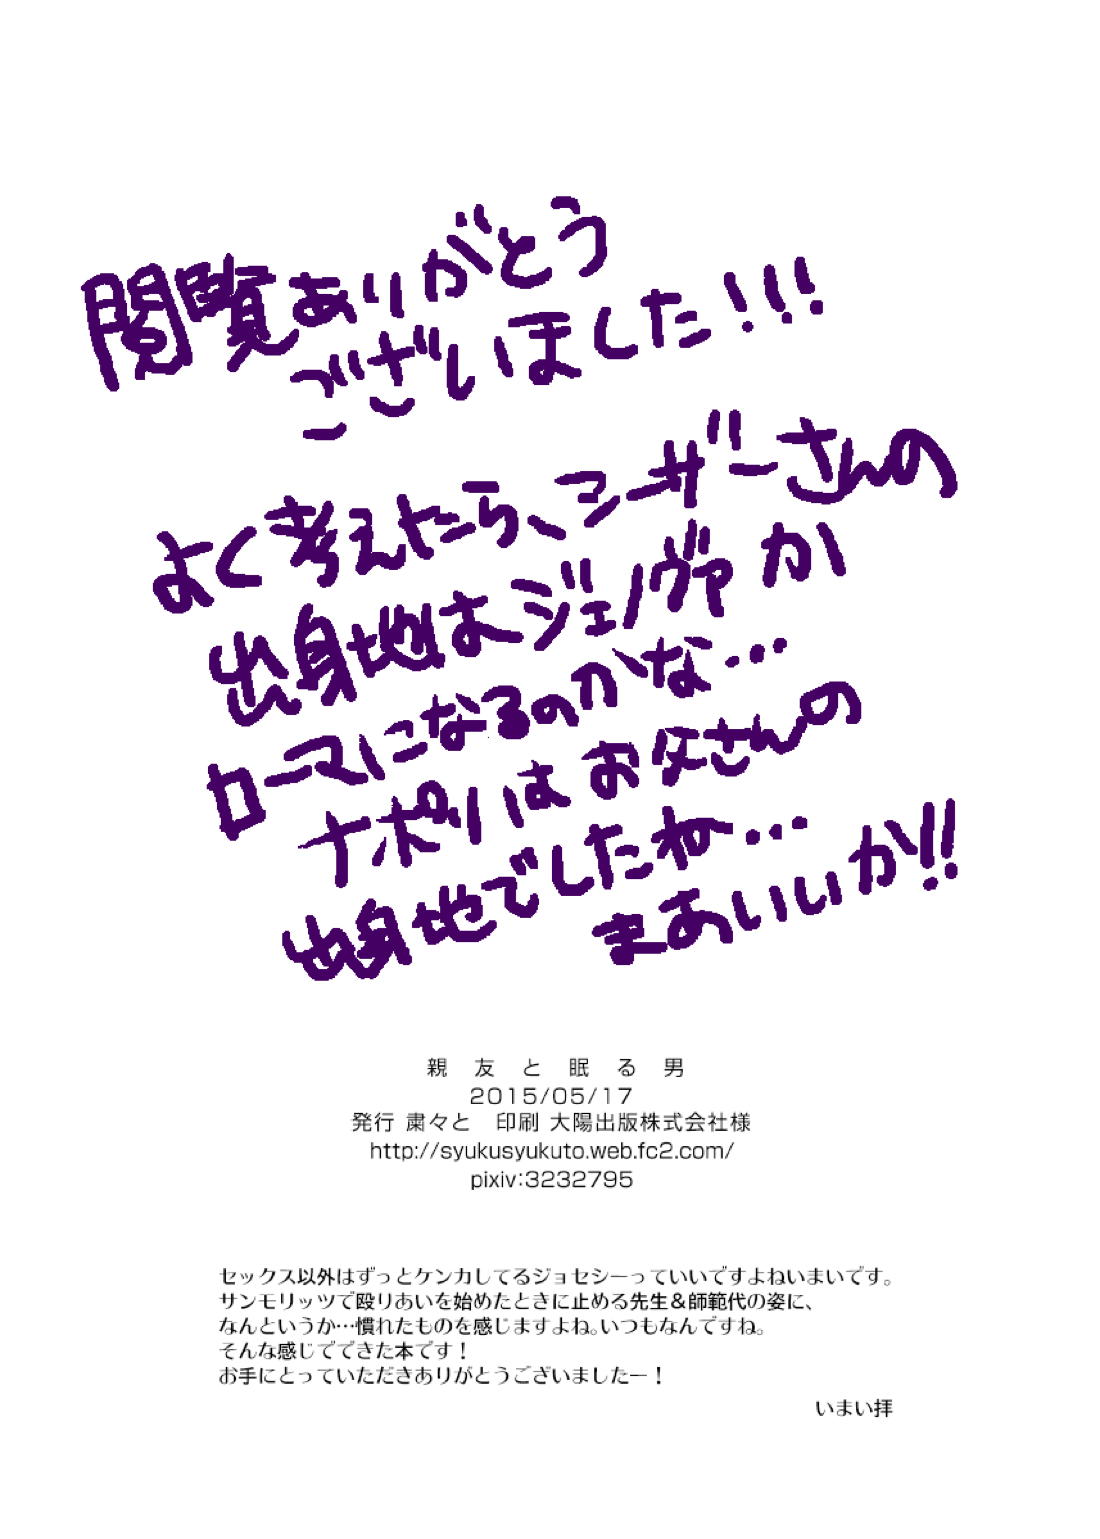 閲覧ありがとう
ございました!!!
よく考えたら、シーザーさんの
出身地はジェノヴァか
ローマになるのかな…
ナポリはお父さんの
出身地でしたね…
まあいいか!!
親友と眠る男
2015/05/17
発行 粛々と 印刷 大陽出版株式会社様
http://syukusyukuto.web.fc2.com/
pixiv:3232795
セックス以外はずっとケンカしてるジョセシーっていいですよねいまいです。
サンモリッツで殴りあいを始めたときに止める先生＆師範代の姿に、
なんというか…慣れたものを感じますよね。いつもなんですね。
そんな感じでできた本です！
お手にとっていただきありがとうございましたー！
いまい拝